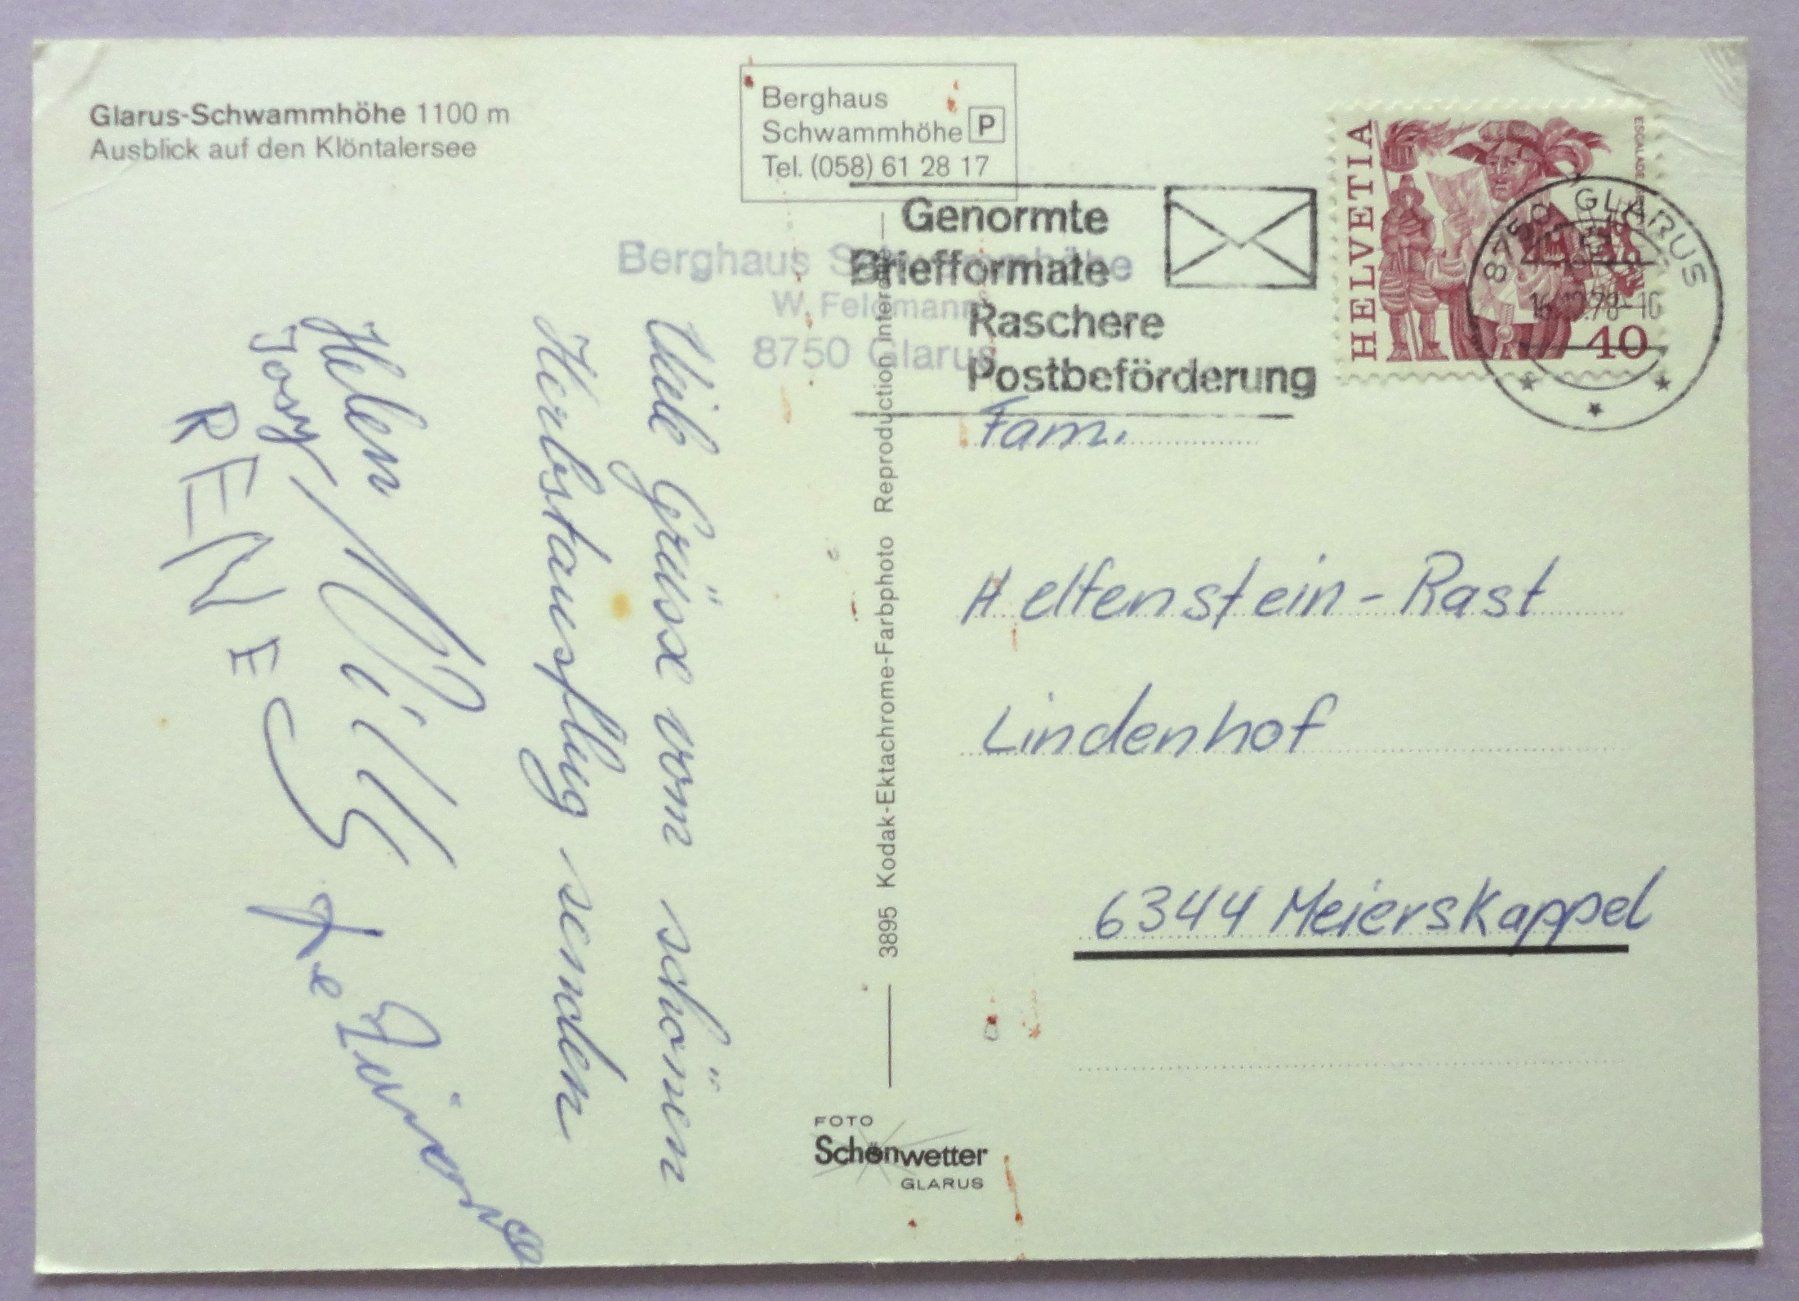 Glarus-Schwammhöhe 1100 m
Ausblick auf den Klöntalersee
Berghaus
Schwammhöhe P
Tel. (058) 61 28 17
Berghaus Schwammhöhe
W. Feldmann
8750 Glarus
Genormte
Briefformate
Raschere
Postbeförderung
HELVETIA
ESCALADE
40
8750 GLARUS
16.10.78-16
Viele Grüsse vom schönen
Herbstausflug senden
Helen
Josy
Willy
RENE
Fam.
Helfenstein-Rast
Lindenhof
6344 Meierskappel
3895 Kodak-Ektachrome-Farbphoto Reproduction interdite
FOTO
Schönwetter
GLARUS